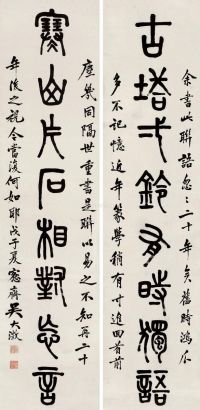 余書此聯語忽〻二十年矣舊時鴻爪
古塔弌鈴有時獨語
多不記憶近年篆學稍有寸進回首前
塵幾同隔世重書是聯以易之不知再二十
寒山片石相對忘言
年後之視今當復何如耶戊子夏愙齋吳大澂